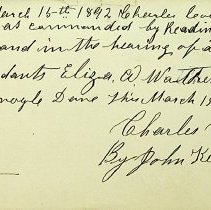 March 15th 1892 Charles
as commanded by Readin
and in the hearing of a
dants Eliza, A
Done this March 1
Charles
By John